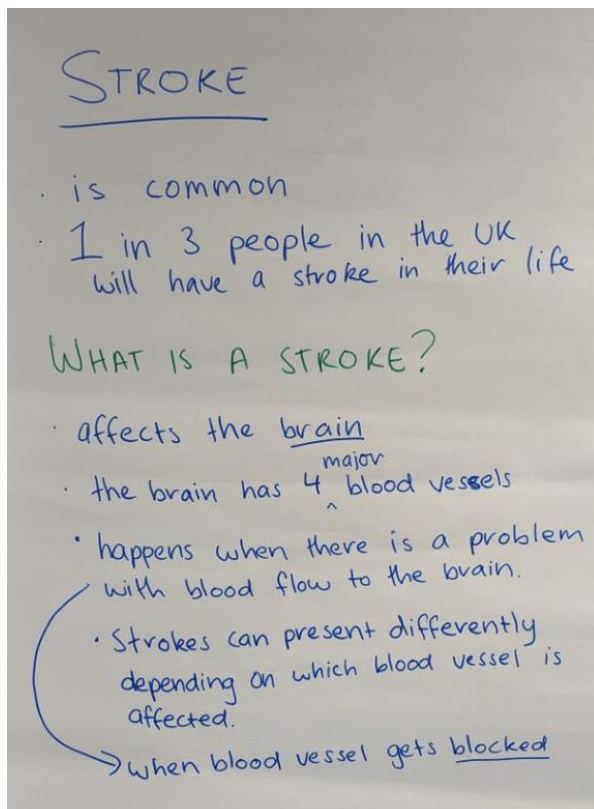 STROKE
· is common
· 1 in 3 people in the UK
will have a stroke in their life
WHAT IS A STROKE?
· affects the brain
major
· the brain has 4 ^ blood vessels
· happens when there is a problem
with blood flow to the brain.
· Strokes can present differently
depending on which blood vessel is
affected.
→ when blood vessel gets blocked